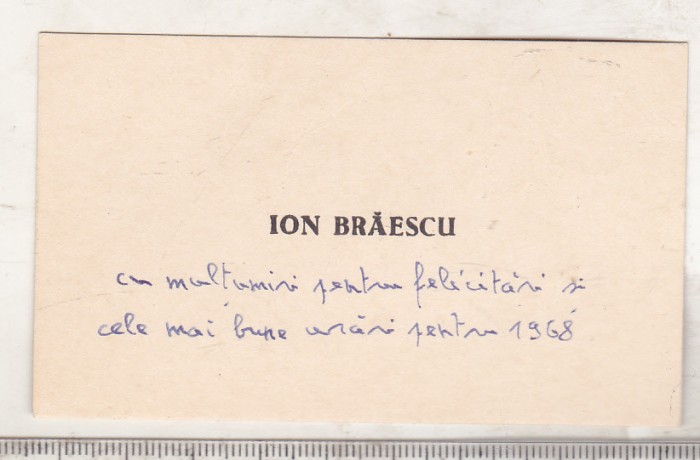 ION BRĂESCU
cu mulțumiri pentru felicitări și
cele mai bune urări pentru 1968